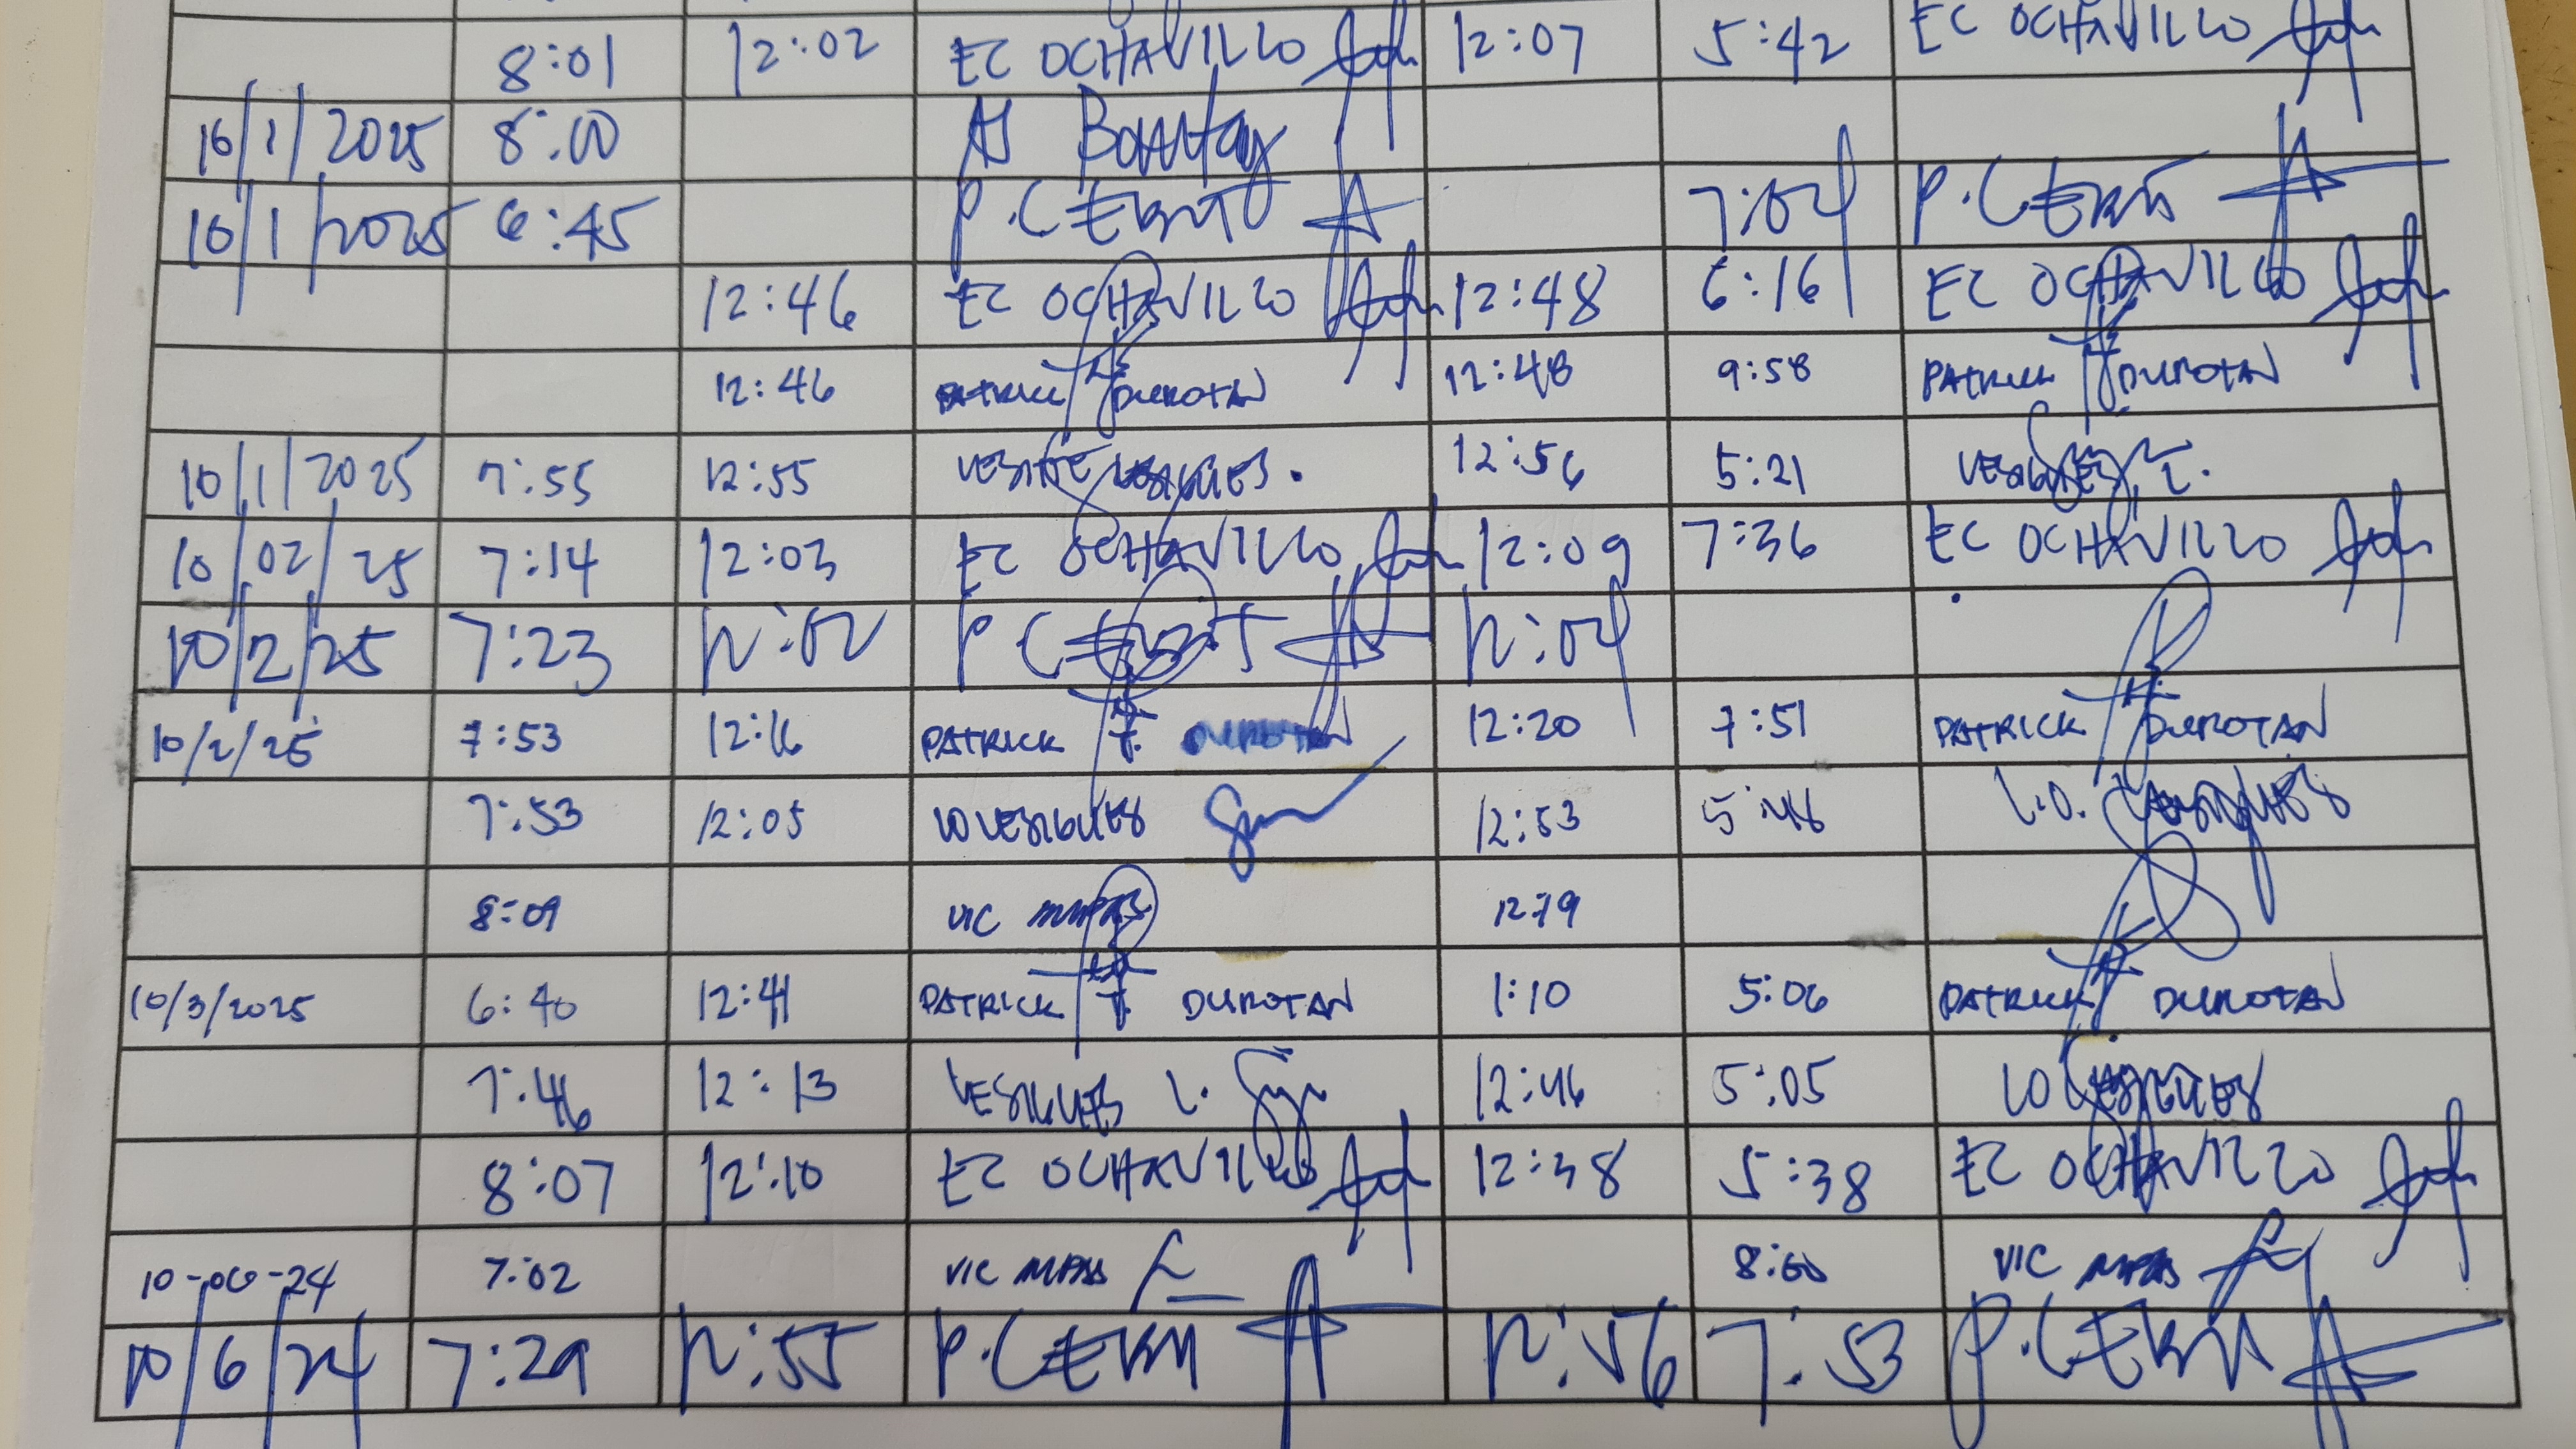 8:01 12:02 EC OCHAVILLO 12:07 5:42 EC OCHAVILLO
10/1/2025 8:00 AJ
10/1/2025 6:45 P. 7:04 P.
12:46 EC OCHAVILLO 12:48 6:16 EC OCHAVILLO
12:46 PATRICK DUROTAN 12:48 9:58 PATRICK DUROTAN
10/1/2025 7:55 12:55 VESIGUES. 12:56 5:21 VESIGUES, L.
10/02/25 7:14 12:03 EC OCHAVILLO 12:09 7:36 EC OCHAVILLO
10/2/25 7:23 12:02 P 12:04
10/2/25 7:53 12:16 PATRICK T. DUROTAN 12:20 7:51 PATRICK DUROTAN
7:53 12:05 LO VESIGUES 12:53 5:48 L.O. VESIGUES
8:09 VIC
10/3/2025 6:40 12:41 PATRICK T. DUROTAN 1:10 5:06 PATRICK DUROTAN
7:46 12:13 VESIGUES L. 12:46 5:05 LO VESIGUES
8:07 12:10 EC OCHAVILLO 12:38 5:38 EC OCHAVILLO
10-06-24 7:02 VIC 8:00 VIC
10/6/24 7:29 12:55 P. 12:56 7:53 P.